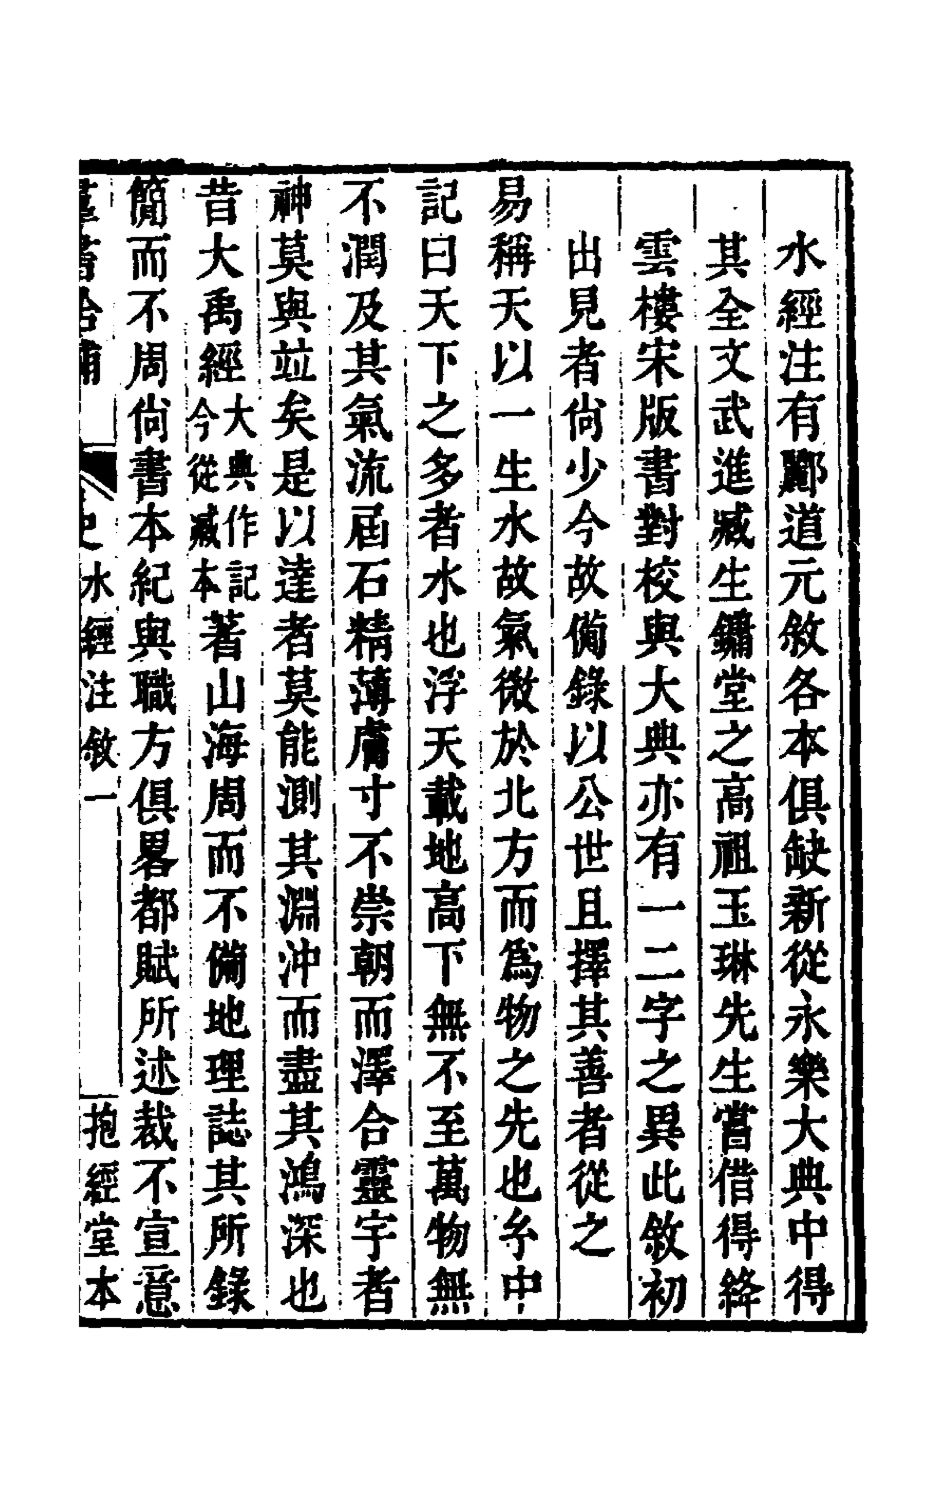 水經注有酈道元敘各本俱缺新從永樂大典中得
其全文武進臧生鏞堂之高祖玉琳先生嘗借得絳
雲樓宋版書對校與大典亦有一二字之異此敘初
出見者尚少今故備錄以公世且擇其善者從之
易稱天以一生水故氣微於北方而爲物之先也㐧中
記曰天下之多者水也浮天載地高下無不至萬物無
不潤及其氣流屆石精薄膚寸不崇朝而澤合靈宇者
神莫與竝矣是以達者莫能測其淵沖而盡其鴻深也
昔大禹經大典作記今從臧本著山海周而不備地理誌其所錄
簡而不周尙書本紀與職方俱畧都賦所述裁不宣意
羣書拾補 史 水經注敘 一 抱經堂本